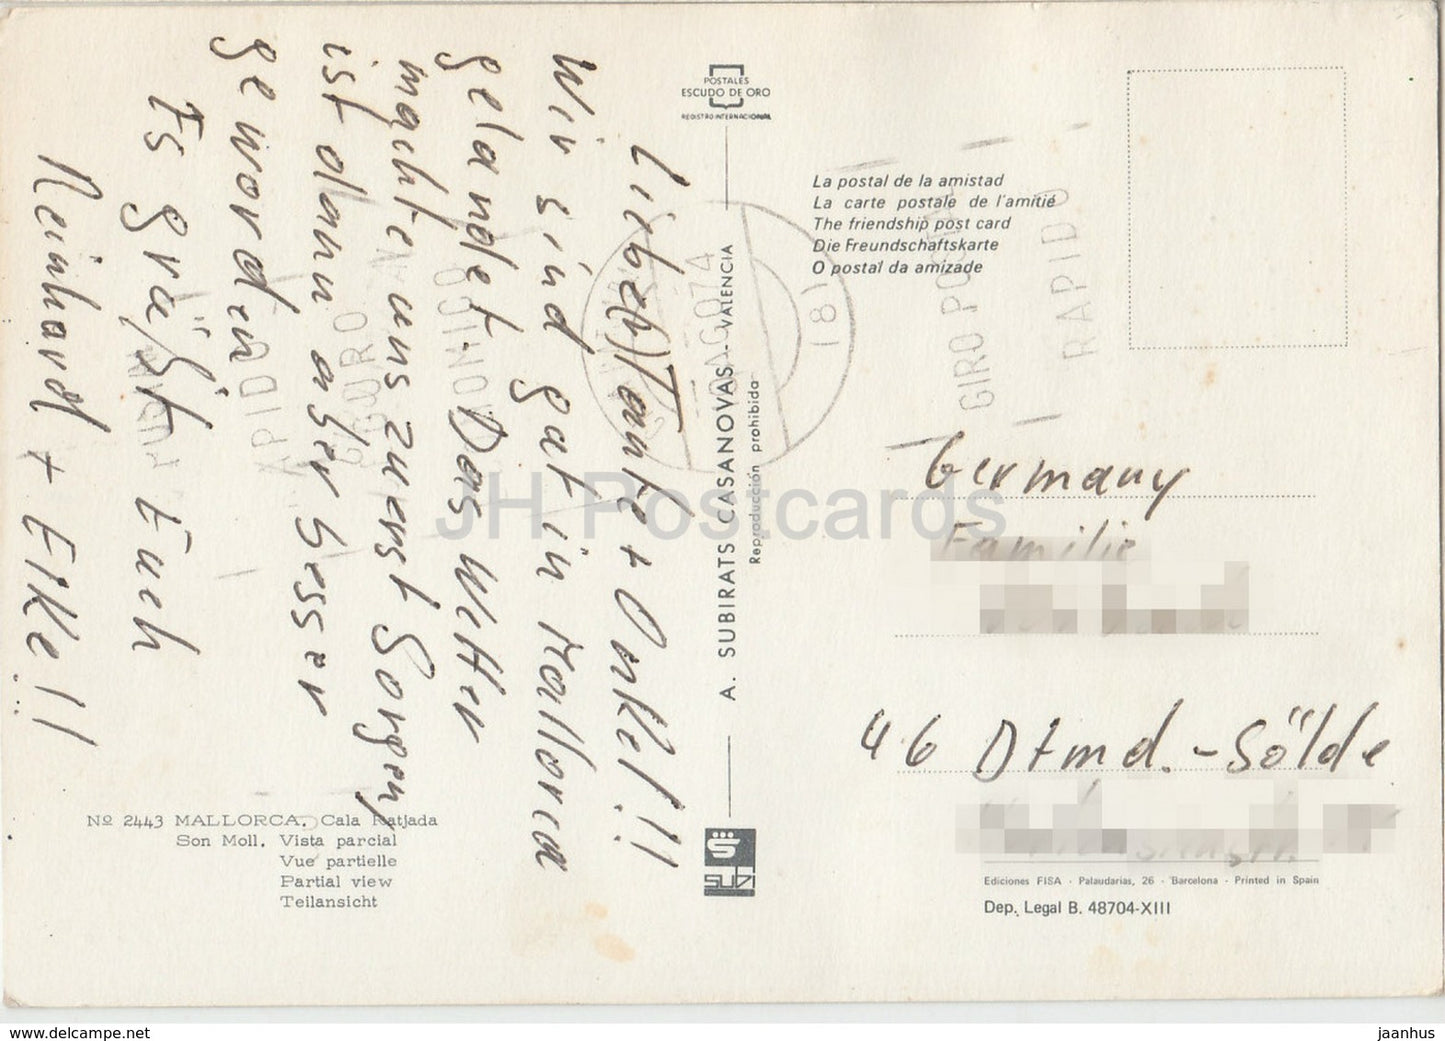 Liebe(r) Tante + Onkel!!
Wir sind gut in Mallorca
gelandet. Das Wetter
machte uns zuerst Sorgen,
ist dann aber besser
geworden.
Es grüßt Euch
Reinhard + Elke!!
POSTALES
ESCUDO DE ORO
REGISTRO INTERNACIONAL
La postal de la amistad
La carte postale de l'amitié
The friendship post card
Die Freundschaftskarte
O postal da amizade
A. SUBIRATS CASANOVAS - VALENCIA
Reproducción prohibida
AGO 74
181
GIRO POSTAL
RAPIDO
RAPIDO
GIRO
Germany
Familie
46 Dtmd.-Sölde
Nº 2443 MALLORCA. Cala Ratjada
Son Moll. Vista parcial
Vue partielle
Partial view
Teilansicht
SUBI
Ediciones FISA - Palaudarias, 26 - Barcelona - Printed in Spain
Dep. Legal B. 48704-XIII
JH Postcards
www.delcampe.net
jaanhus